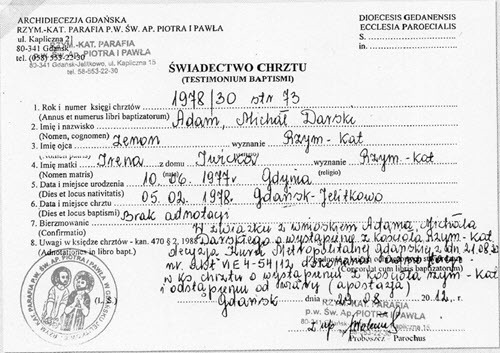 ARCHIDIECEZJA GDAŃSKA
RZYM.-KAT. PARAFIA P.W. ŚW. AP. PIOTRA I PAWŁA
ul. Kapliczna 21
80-341 Gdańsk
tel. (058) 553-22-30
RZYM.-KAT. PARAFIA
p.w. Św. AP. PIOTRA I PAWŁA
80-341 Gdańsk-Jelitkowo, ul. Kapliczna 15
tel. 58-553-22-30
DIOECESIS GEDANENSIS
ECCLESIA PAROECIALIS
S.
in.
ŚWIADECTWO CHRZTU
(TESTIMONIUM BAPTISMI)
1. Rok i numer księgi chrztów 1978/30 str 73
(Annus et numerus libri baptizatorum)
2. Imię i nazwisko Adam, Michał Darski
(Nomen, cognomen)
3. Imię ojca Zenon wyznanie Rzym-kat
4. Imię matki Irena z domu wyznanie Rzym-kat
(Nomen matris) (nata) (religio)
5. Data i miejsce urodzenia 10.06.1977r Gdynia
(Dies et locus nativitatis)
6. Data i miejsce chrztu 05.02.1978. Gdańsk-Jelitkowo
(Dies et locus baptismi)
7. Bierzmowanie Brak adnotacji
(Confirmatio)
8. Uwagi w księdze chrztów - kan. 470 § 2, 1988
(Adnotationes in libro bapt.)
W związku z wnioskiem Adama Michała
Darskiego o wystąpienie z kościoła Rzym-kat
decyzją Kurii Metropolitalnej Gdańskiej z dn 21.08.
nr. dokonano
(Concordat cum libris baptizatorum)
w ks chrztu o wystąpieniu z kościoła rzym-kat
i odstąpieniu od wiary (apostazja)
(L. S.)
Gdańsk dnia 29.08 2012 r.
RZYM.-KAT. PARAFIA
p.w. Św. AP. PIOTRA I PAWŁA
80-341 Gdańsk-Jelitkowo, ul. Kapliczna 15
Proboszcz Parochus